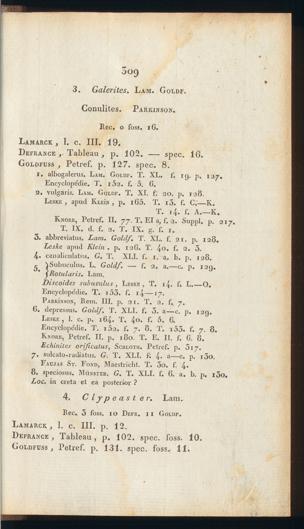 309
3. Galerites. Lam. Goldf.
Conulites. Parkinson.
Rec. 0 foss. 16.
Lamarck, l. c. III. 19.
Defrance, Tableau, p. 102. — spec. 16.
Goldfuss, Petref. p. 127. spec. 8.
1. albogalerus. Lam. Goldf. T. XL. f. 19. p. 127.
Encyclopédie. T. 152. f. 5. 6.
2. vulgaris. Lam. Goldf. T. XL f. 20. p. 128.
Leske, apud Klein, p. 165. T. 13. f. C.—K.
T. 14. f. A.—K.
Knorr, Petref. II. 77. T. EI a, f. 2. Suppl. p. 217.
T. IX. d. f. 2. T. IX. g. f. 1.
3. abbreviatus. Lam. Goldf. T. XL. f. 21. p. 128.
Leske apud Klein, p. 166. T. 40. f. 2. 3.
4. canaliculatus. G. T. XLI. f. 1. a. b. p. 128.
5. {Subuculus. L. Goldf. — f. 2. a.—c. p. 129.
{Rotularis. Lam.
Discoides subuculus, Leske, T. 14. f. L.—O.
Encyclopédie. T. 153. f. 14—17.
Parkinson, Rem. III. p. 21. T. 2. f. 7.
6. depressus. Goldf. T. XLI. f. 3. a—c. p. 129.
Leske, l. c. p. 164. T. 40. f. 5. 6.
Encyclopédie. T. 152. f. 7. 8. T. 153. f. 7. 8.
Knorr, Petref. II. p. 180. T. E. II. f. 6. 8.
Echinites orificatus, Schloth. Petref. p. 317.
7. sulcato-radiatus. G. T. XLI. f. 4. a—c. p. 130.
Faujas St. Fond, Maestricht. T. 30. f. 4.
8. speciosus, Münster. G. T. XLI. f. 6. a. b. p. 130.
Loc. in creta et ea posterior?
4. Clypeaster. Lam.
Rec. 3 foss. 10 Defr. 11 Goldf.
Lamarck, l. c. III. p. 12.
Defrance, Tableau, p. 102. spec. foss. 10.
Goldfuss, Petref. p. 131. spec. foss. 11.